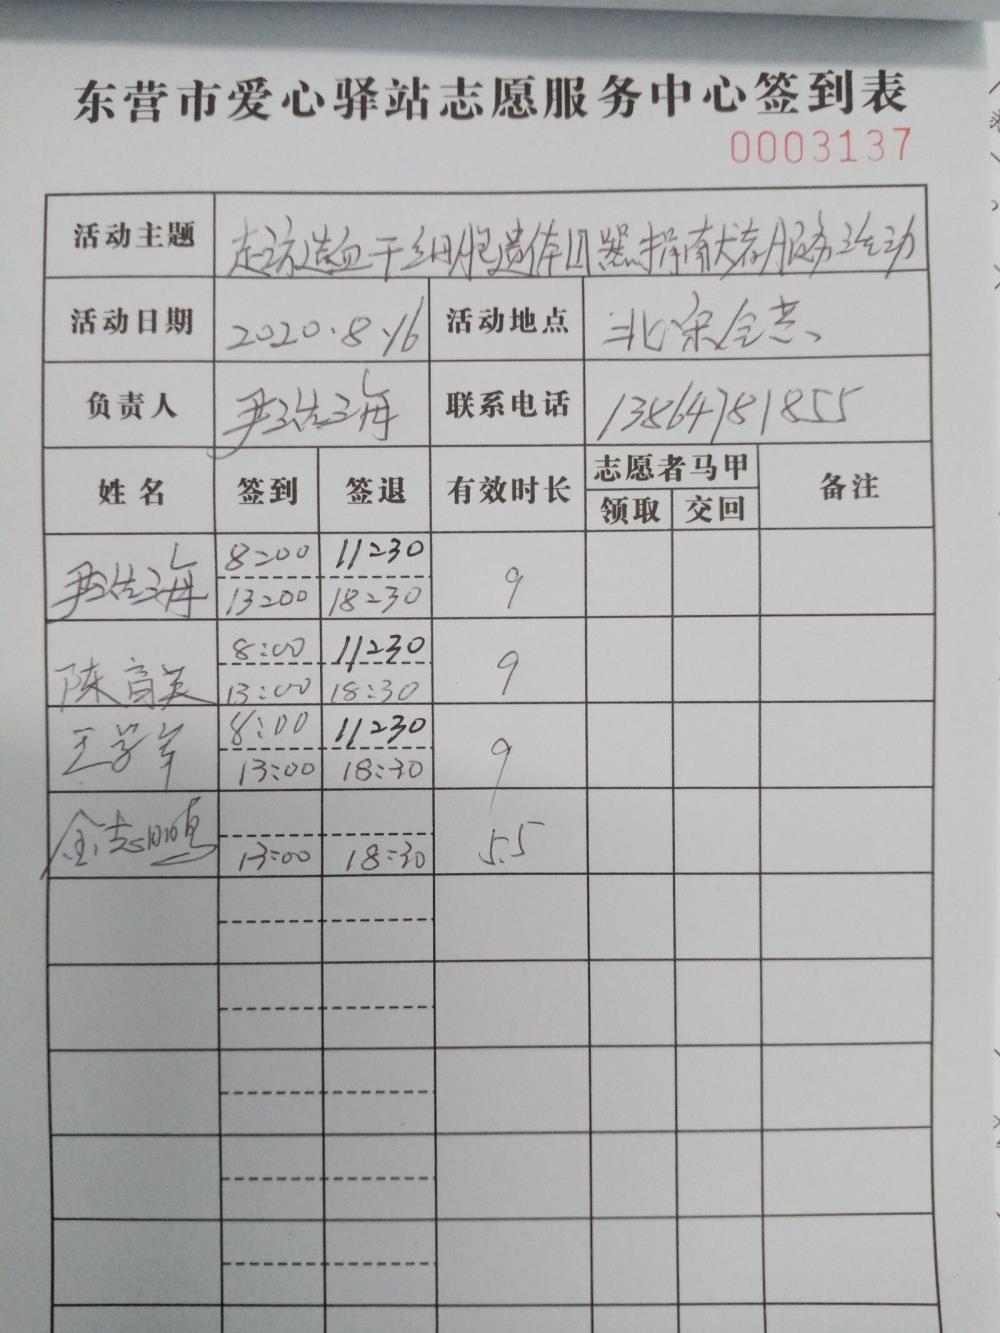 东营市爱心驿站志愿服务中心签到表
0003137
活动主题 走访造血干细胞遗体 器捐献 服务活动
活动日期 2020.8.16 活动地点 北宋
负责人 尹浩海 联系电话 13864781855
姓名 签到 签退 有效时长 志愿者马甲 备注
领取 交回
尹浩海 8:00 11:30 9
13:00 18:30
陈育英 8:00 11:30 9
13:00 18:30
王学军 8:00 11:30 9
13:00 18:30
金志鹏 5.5
13:00 18:30